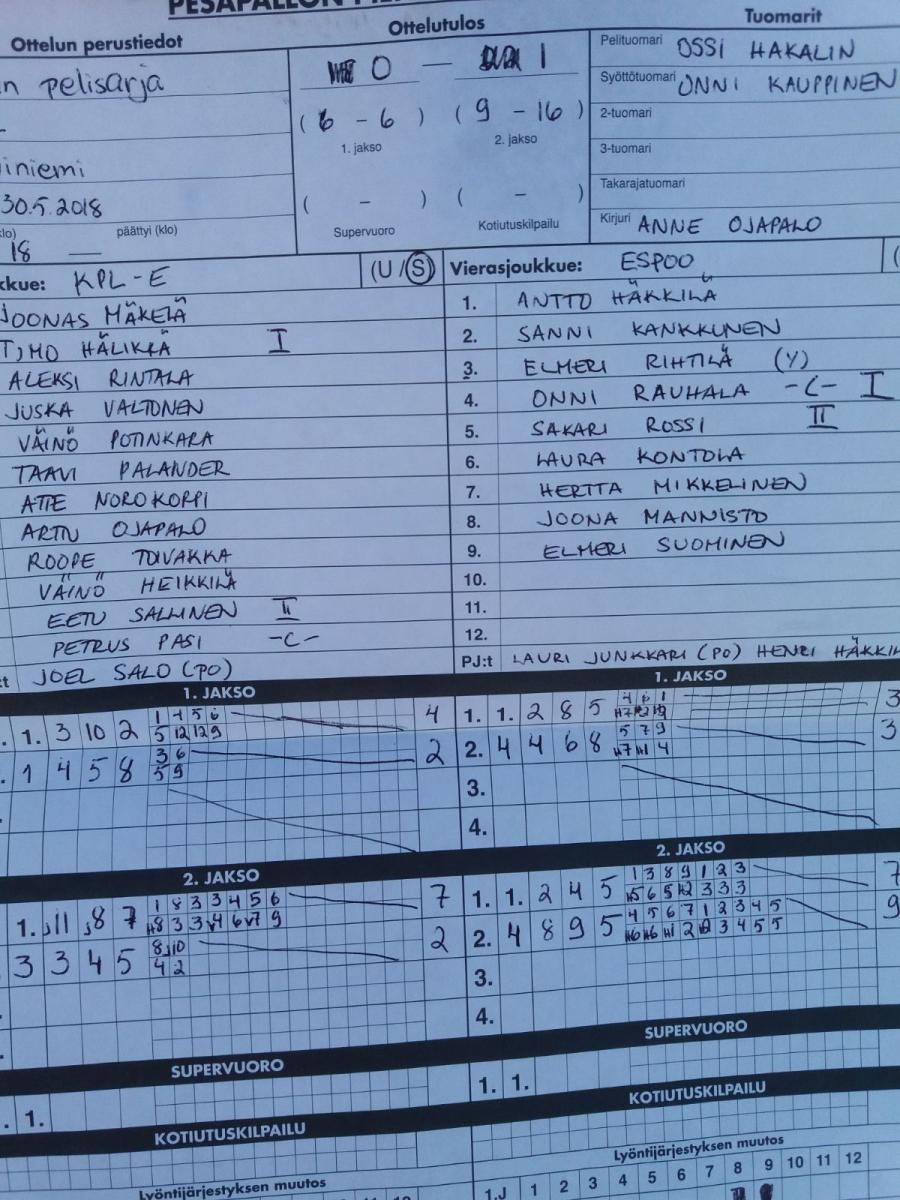 PESÄPALLON
Ottelun perustiedot
pelisarja
iniemi
30.5.2018
klo) päättyi (klo)
18 —
Ottelutulos
0 — 1
(6 - 6) (9 - 16)
1. jakso 2. jakso
( - ) ( - )
Supervuoro Kotiutuskilpailu
Tuomarit
Pelituomari OSSI HAKALIN
Syöttötuomari ONNI KAUPPINEN
2-tuomari
3-tuomari
Takarajatuomari
Kirjuri ANNE OJAPALO
kkue: KPL-E (U/S)
JOONAS MÄKELÄ
TIMO HÄLIKKÄ I
ALEKSI RINTALA
JUSKA VALTONEN
VÄINÖ POTINKARA
TAAVI PALANDER
ATTE NOROKORPI
ARTTU OJAPALO
ROOPE TOIVAKKA
VÄINÖ HEIKKILÄ
EETU SALLINEN II
PETRUS PASI -C-
:t JOEL SALO (PO)
Vierasjoukkue: ESPOO (
1. ANTTO HÄKKILÄ
2. SANNI KANKKUNEN
3. ELMERI RIHTILÄ (Y)
4. ONNI RAUHALA -C- I
5. SAKARI ROSSI II
6. LAURA KONTOLA
7. HERTTA MIKKELINEN
8. JOONA MANNISTO
9. ELMERI SUOMINEN
10.
11.
12.
PJ:t LAURI JUNKKARI (PO) HENRI HÄKKIL
1. JAKSO
. 1. 3 10 2 1 4 5 6 4
5 12 12 9
. 1 4 5 8 3 6 2
5 9
2. JAKSO
1. 11 8 7 1 8 3 3 4 5 6 7
3 3 3 4 5 8 10 2
4 2
SUPERVUORO
. 1.
KOTIUTUSKILPAILU
Lyöntijärjestyksen muutos
1. JAKSO
1. 1. 2 8 5 4 6 1 3
2. 4 4 6 8 5 7 9 3
3.
4.
2. JAKSO
1. 1. 2 4 5 1 3 8 9 1 2 3 7
2. 4 8 9 5 4 5 6 7 1 2 3 4 5 9
3.
4.
SUPERVUORO
1. 1.
KOTIUTUSKILPAILU
Lyöntijärjestyksen muutos
1.J 1 2 3 4 5 6 7 8 9 10 11 12